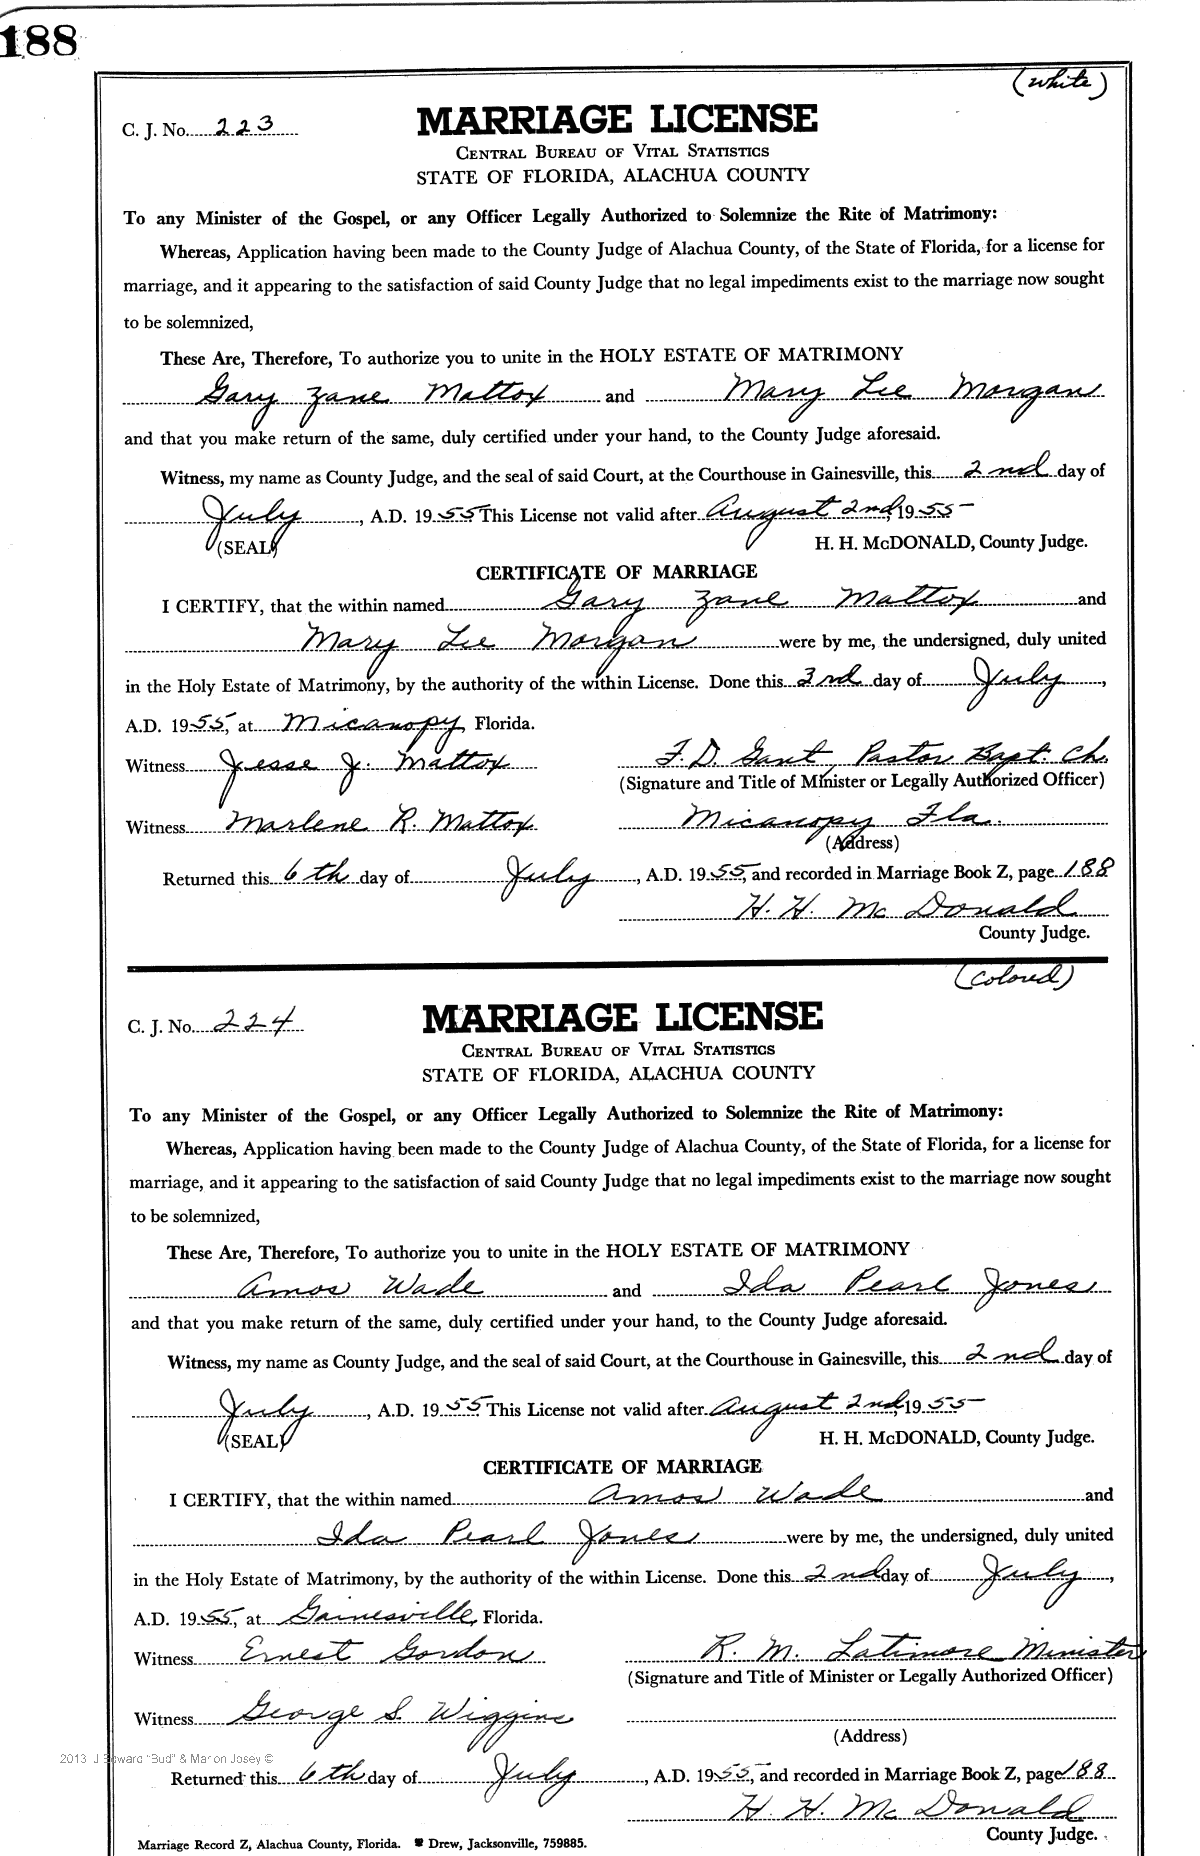 188
(white)
C. J. No. 223
MARRIAGE LICENSE
CENTRAL BUREAU OF VITAL STATISTICS
STATE OF FLORIDA, ALACHUA COUNTY
To any Minister of the Gospel, or any Officer Legally Authorized to Solemnize the Rite of Matrimony:
Whereas, Application having been made to the County Judge of Alachua County, of the State of Florida, for a license for
marriage, and it appearing to the satisfaction of said County Judge that no legal impediments exist to the marriage now sought
to be solemnized,
These Are, Therefore, To authorize you to unite in the HOLY ESTATE OF MATRIMONY
Gary Zane Mattox and Mary Lee Morgan
and that you make return of the same, duly certified under your hand, to the County Judge aforesaid.
Witness, my name as County Judge, and the seal of said Court, at the Courthouse in Gainesville, this 2nd day of
July, A.D. 1955 This License not valid after August 2nd, 1955
(SEAL) H. H. McDONALD, County Judge.
CERTIFICATE OF MARRIAGE
I CERTIFY, that the within named Gary Zane Mattox and
Mary Lee Morgan were by me, the undersigned, duly united
in the Holy Estate of Matrimony, by the authority of the within License. Done this 3rd day of July,
A.D. 1955, at Micanopy, Florida.
Witness Jesse J. Mattox F. D. Gant, Pastor Bapt. Ch.
(Signature and Title of Minister or Legally Authorized Officer)
Witness Marlene R. Mattox Micanopy Fla.
(Address)
Returned this 6th day of July, A.D. 1955, and recorded in Marriage Book Z, page 188
H. H. McDonald
County Judge.
(Colored)
C. J. No. 224
MARRIAGE LICENSE
CENTRAL BUREAU OF VITAL STATISTICS
STATE OF FLORIDA, ALACHUA COUNTY
To any Minister of the Gospel, or any Officer Legally Authorized to Solemnize the Rite of Matrimony:
Whereas, Application having been made to the County Judge of Alachua County, of the State of Florida, for a license for
marriage, and it appearing to the satisfaction of said County Judge that no legal impediments exist to the marriage now sought
to be solemnized,
These Are, Therefore, To authorize you to unite in the HOLY ESTATE OF MATRIMONY
Amos Wade and Ida Pearl Jones
and that you make return of the same, duly certified under your hand, to the County Judge aforesaid.
Witness, my name as County Judge, and the seal of said Court, at the Courthouse in Gainesville, this 2nd day of
July, A.D. 1955 This License not valid after August 2nd, 1955
(SEAL) H. H. McDONALD, County Judge.
CERTIFICATE OF MARRIAGE
I CERTIFY, that the within named Amos Wade and
Ida Pearl Jones were by me, the undersigned, duly united
in the Holy Estate of Matrimony, by the authority of the within License. Done this 2nd day of July,
A.D. 1955, at Gainesville, Florida.
Witness Ernest Gordon R. M. Latimore Minister
(Signature and Title of Minister or Legally Authorized Officer)
Witness George S. Wiggins
(Address)
2013 J Edward "Bud" & Marion Josey ©
Returned this 6th day of July, A.D. 1955, and recorded in Marriage Book Z, page 188
H. H. McDonald
County Judge.
Marriage Record Z, Alachua County, Florida. Drew, Jacksonville, 759885.